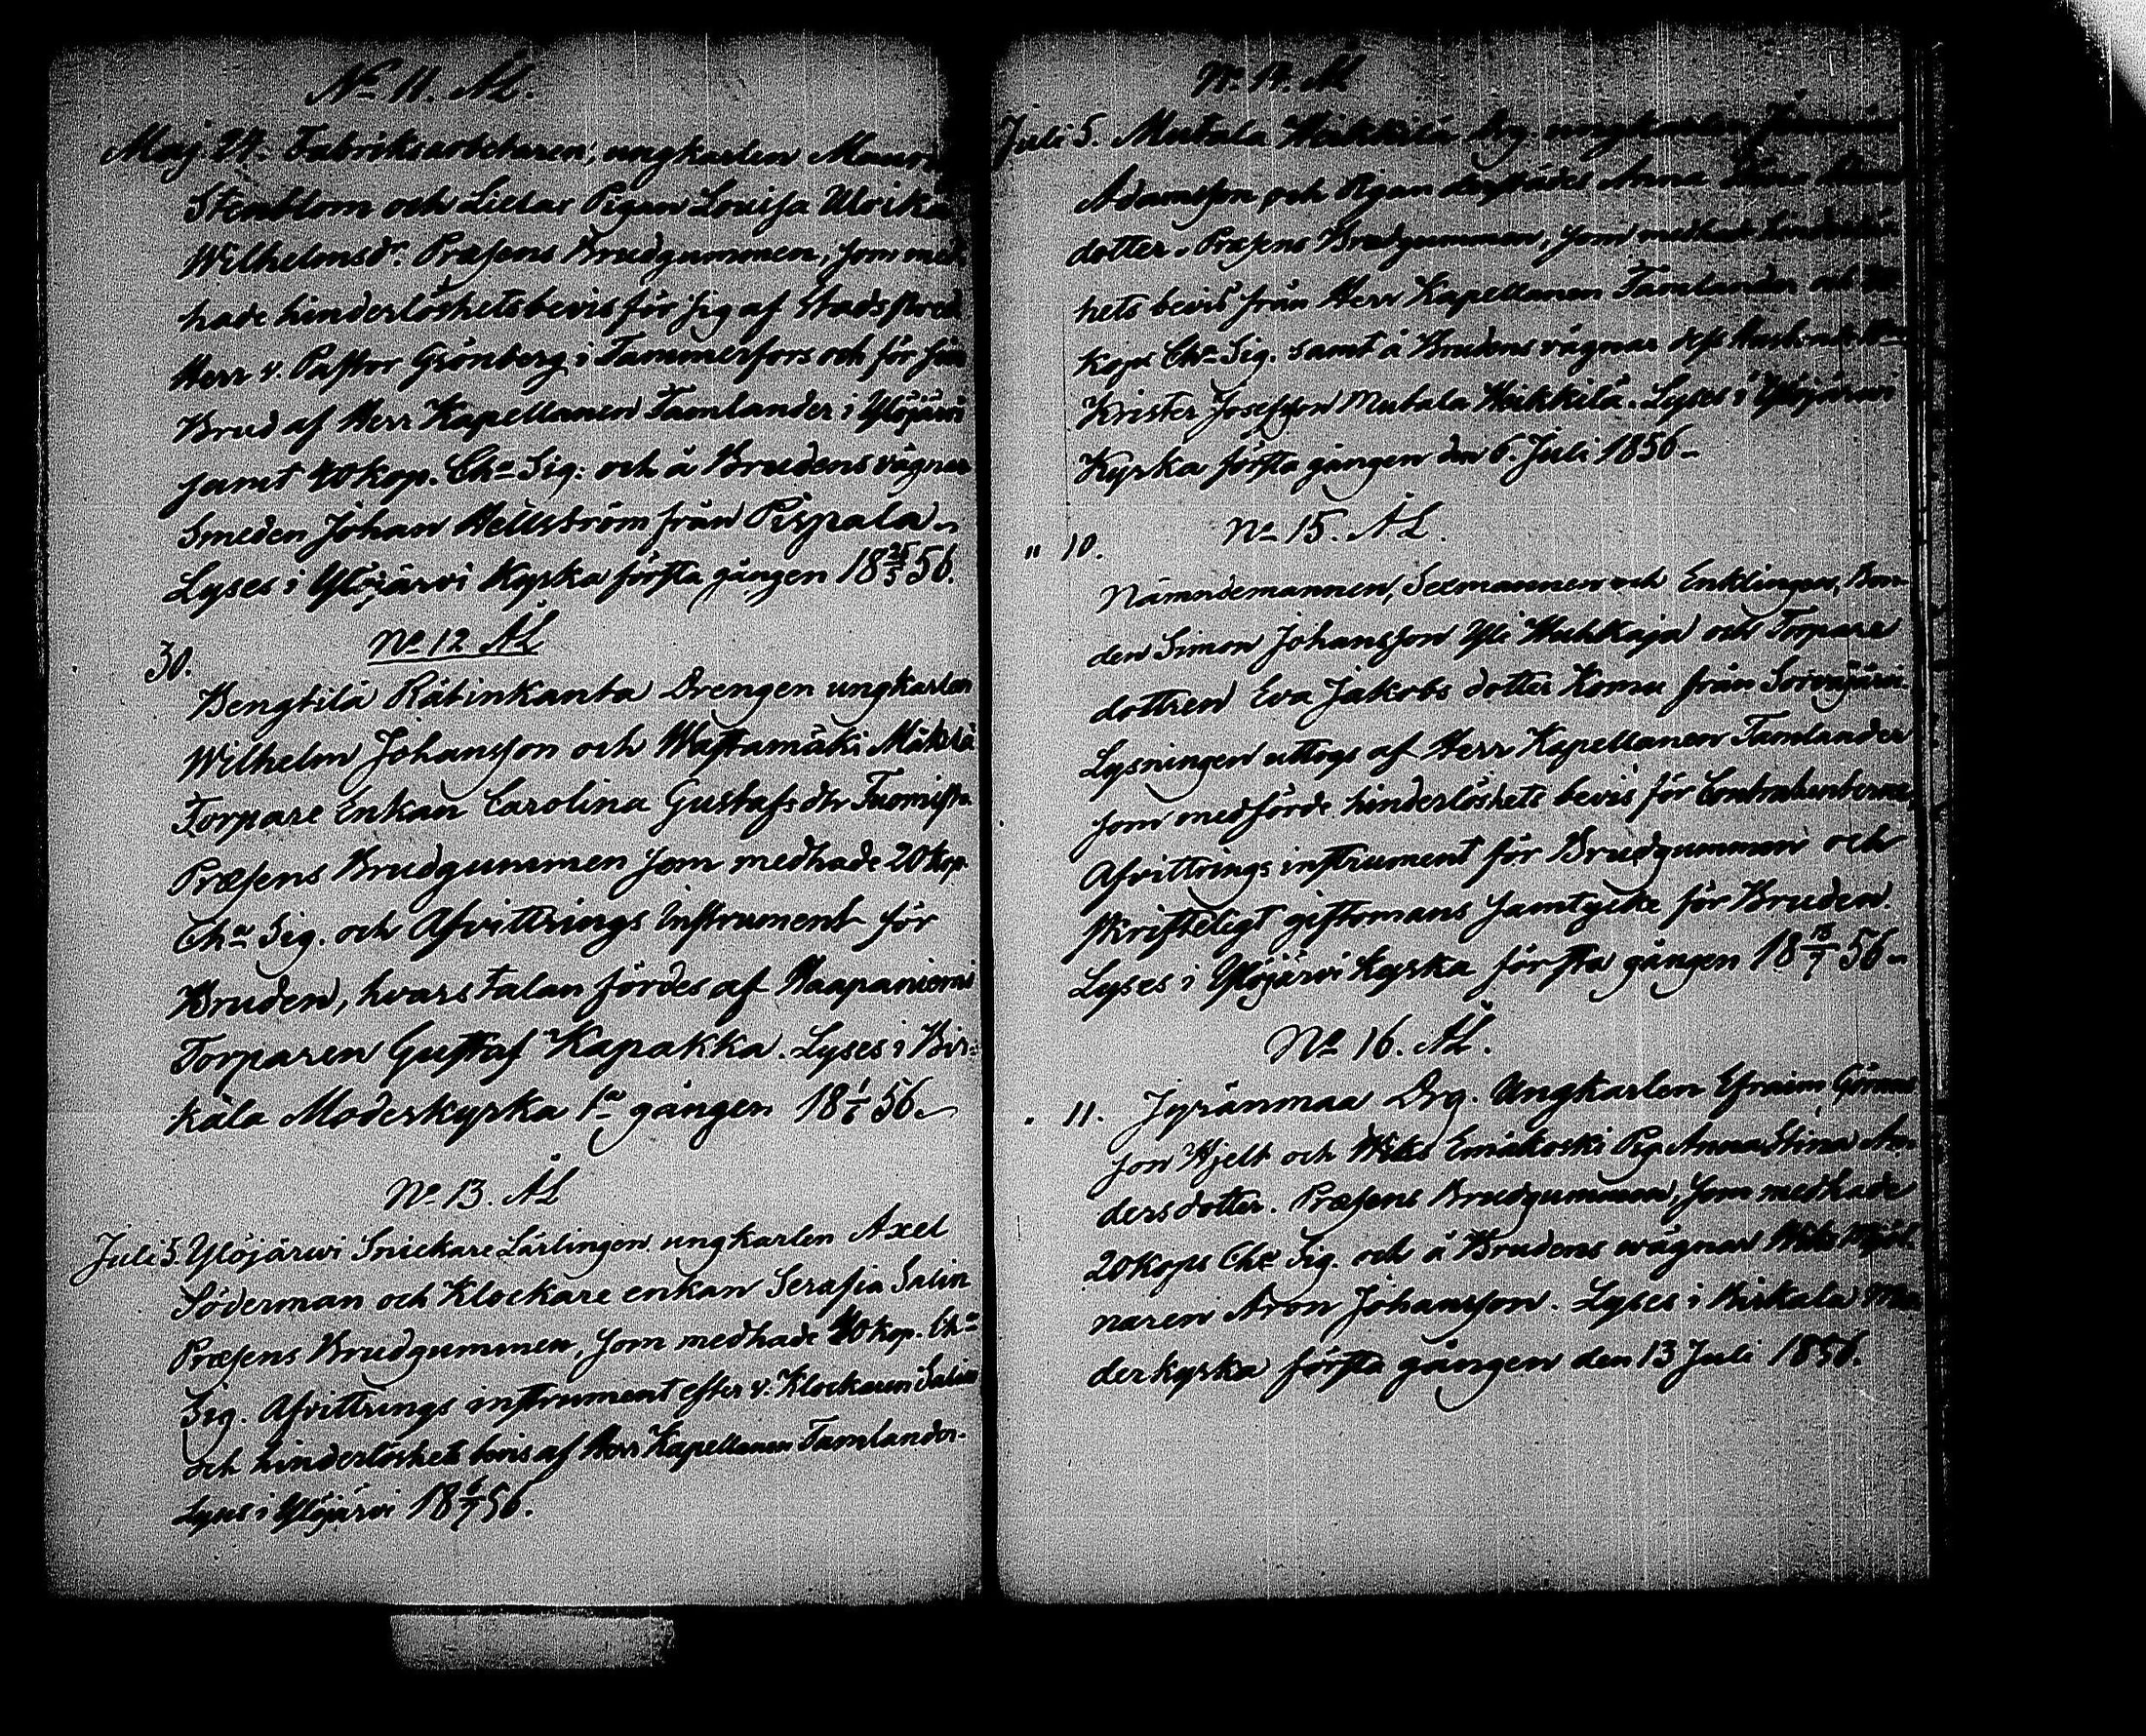 No 11. ÅL.
Maj 24. Fabriksarbetaren, ungkarlen
Stenblom och Lielas Pigan Lovisa Ulrika
Wilhelmsdr. Præsens Brudgummen, som med
hade hinderlöshetsbevis för sig af Stadspred
Herr v. Pastor Grönberg i Tammerfors och för sin
Brud af Herr Kapellanen Tamlander i Ylöjärvi
samt 40 kop. Cha Sig: och å Brudens vägnar
Smeden Johan Hellström från Pispala.
Lyses i Ylöjärvi Kyrka första gången 18 25/5 56.
No 12 ÅL
30.
Bengtilä Rätinkanta Drengen ungkarlen
Wilhelm Johansson och Wastamäki
Torpare Enkan Carolina Gustafs dtr
Præsens Brudgummen som medhade 20 kop
Cha Sig. och Afvittrings Instrument för
Bruden, hvars talan fördes af Haapaniemi
Torparen Gustaf Kapakka. Lyses i Bir-
kala Moderkyrka 1a gången 18 1/6 56.
No 13. ÅL
Juli 5. Ylöjärwi Snickare Lärlingen ungkarlen Axel
Söderman och Klockare enkan Serafia Salin
Præsens Brudgummen, som medhade 40 kop. Cha
Sig. Afvittrings instrument efter v. Klockaren Salin
och hinderlöshets bevis af Herr Kapellanen Tamlander.
Lyses i Ylöjärvi 18 6/7 56.
N. 14. ÅL
Juli 5. Mutala Heikkilä Drg. ungkarlen
Adamsson och Pigan Anna
dotter. Præsens Brudgummen, som medhade hinderlös
hets bevis från Herr Kapellanen Tamlander och
kops Cha Sig. samt å Brudens vägnar
Krister Josefsson Mutala Heikkilä. Lyses i Ylöjärvi
Kyrka första gången den 6. Juli 1856.
No 15. ÅL.
" 10.
Nämndemannen, Sexmannen och Enklingen, Bon-
den Simon Johansson Yli Huhkaja och Torpare
dottren Eva Jakobs dotter Komu från
Lysningen uttogs af Herr Kapellanen Tamlander
som medförde hinderlöshets bevis för Contrahenterne,
Afvittrings instrument för Brudgummen och
skrifteligt giftomans samtycke för Bruden.
Lyses i Ylöjärvi Kyrka första gången 18 13/7 56.
No 16. ÅL.
" 11. Jyränmaa Drg. Ungkarlen Efraim
son Hjelt och Emäkoski Pig. Anna Stina An-
ders dotter. Præsens Brudgummen, som medhade
20 kops Cha Sig. och å Brudens wägnar
naren Aron Johansson. Lyses i Birkala Mo
derkyrka första gången den 13 Juli 1856.